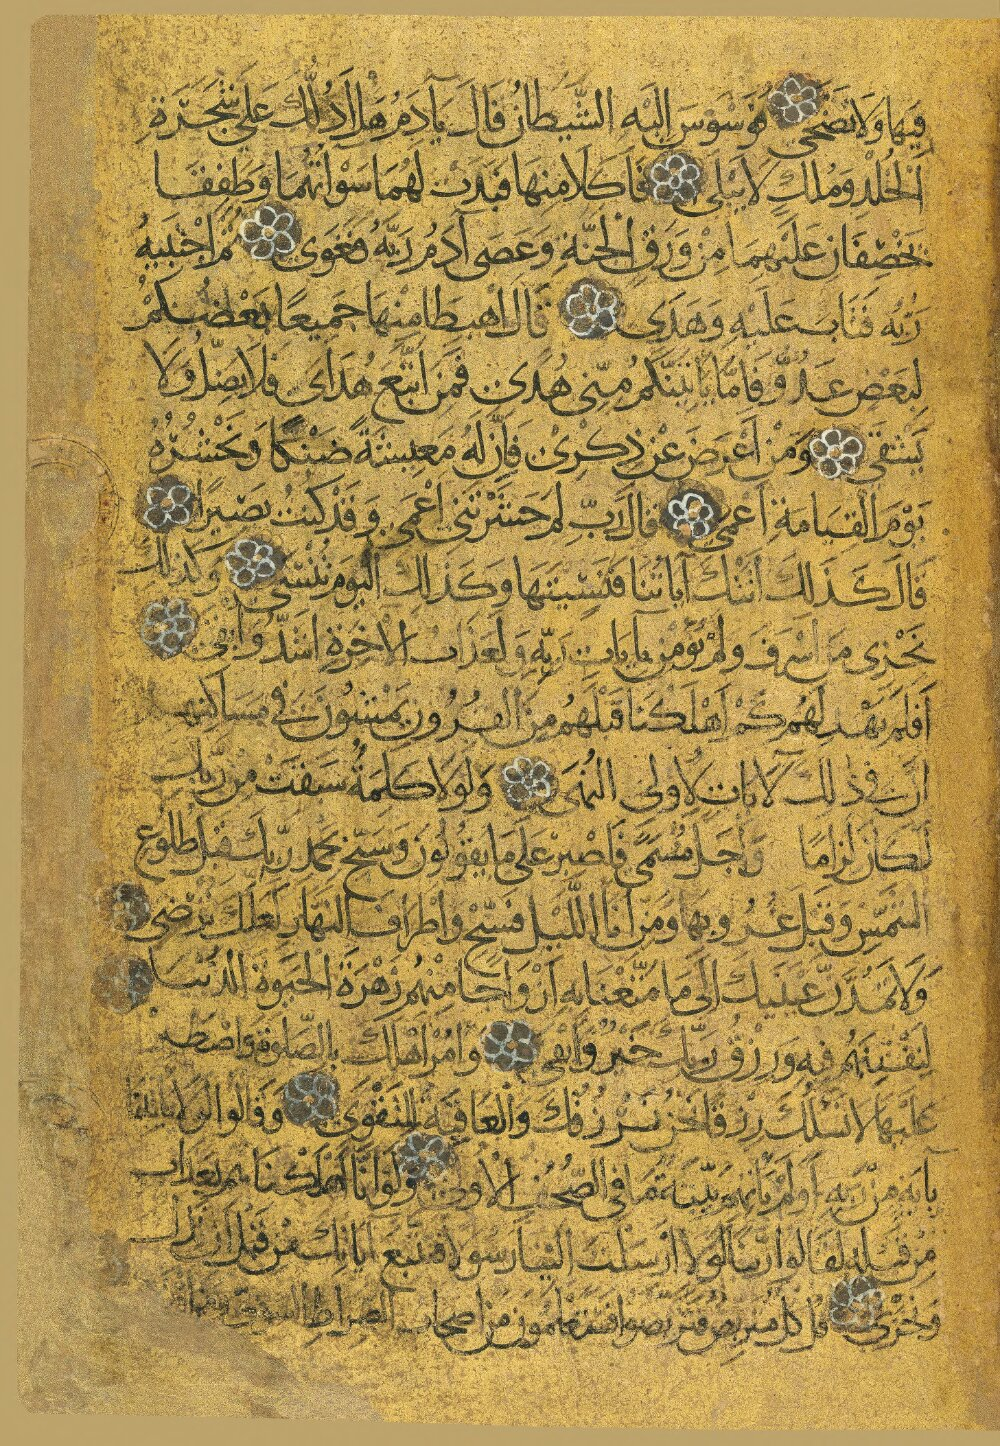 فيها ولا تضحى فوسوس إليه الشيطان قال يا آدم هل أدلك على شجرة
الخلد وملك لا يبلى فأكلا منها فبدت لهما سوآتهما وطفقا
يخصفان عليهما من ورق الجنة وعصى آدم ربه فغوى ثم اجتبيه
ربه فتاب عليه وهدى قال اهبطا منها جميعا بعضكم
لبعض عدو فإما يأتينكم مني هدى فمن اتبع هداى فلا يضل ولا
يشقى ومن أعرض عن ذكرى فإن له معيشة ضنكا ونحشره
يوم القيامة أعمى قال رب لم حشرتني أعمى وقد كنت بصيرا
قال كذلك أتتك آياتنا فنسيتها وكذلك اليوم تنسى وكذلك
نجزى من أسرف ولم يؤمن بآيات ربه ولعذاب الآخرة أشد وأبقى
أفلم يهد لهم كم أهلكنا قبلهم من القرون يمشون في مساكنهم
إن في ذلك لآيات لأولى النهى ولولا كلمة سبقت من ربك
لكان لزاما وأجل مسمى فاصبر على ما يقولون وسبح بحمد ربك قبل طلوع
الشمس وقبل غروبها ومن آناء الليل فسبح وأطراف النهار لعلك ترضى
ولا تمدن عينيك إلى ما متعنا به أزواجا منهم زهرة الحيوة الدنيا
لنفتنهم فيه ورزق ربك خير وأبقى وأمر أهلك بالصلوة واصطبر
عليها لا نسئلك رزقا نحن نرزقك والعاقبة للتقوى وقالوا لولا يأتينا
بآية من ربه أولم تأتهم بينة ما في الصحف الأولى ولو أنا أهلكناهم بعذاب
من قبله لقالوا ربنا لولا أرسلت إلينا رسولا فنتبع آياتك من قبل أن نذل
ونخزى قل كل متربص فتربصوا فستعلمون من أصحاب الصراط السوى